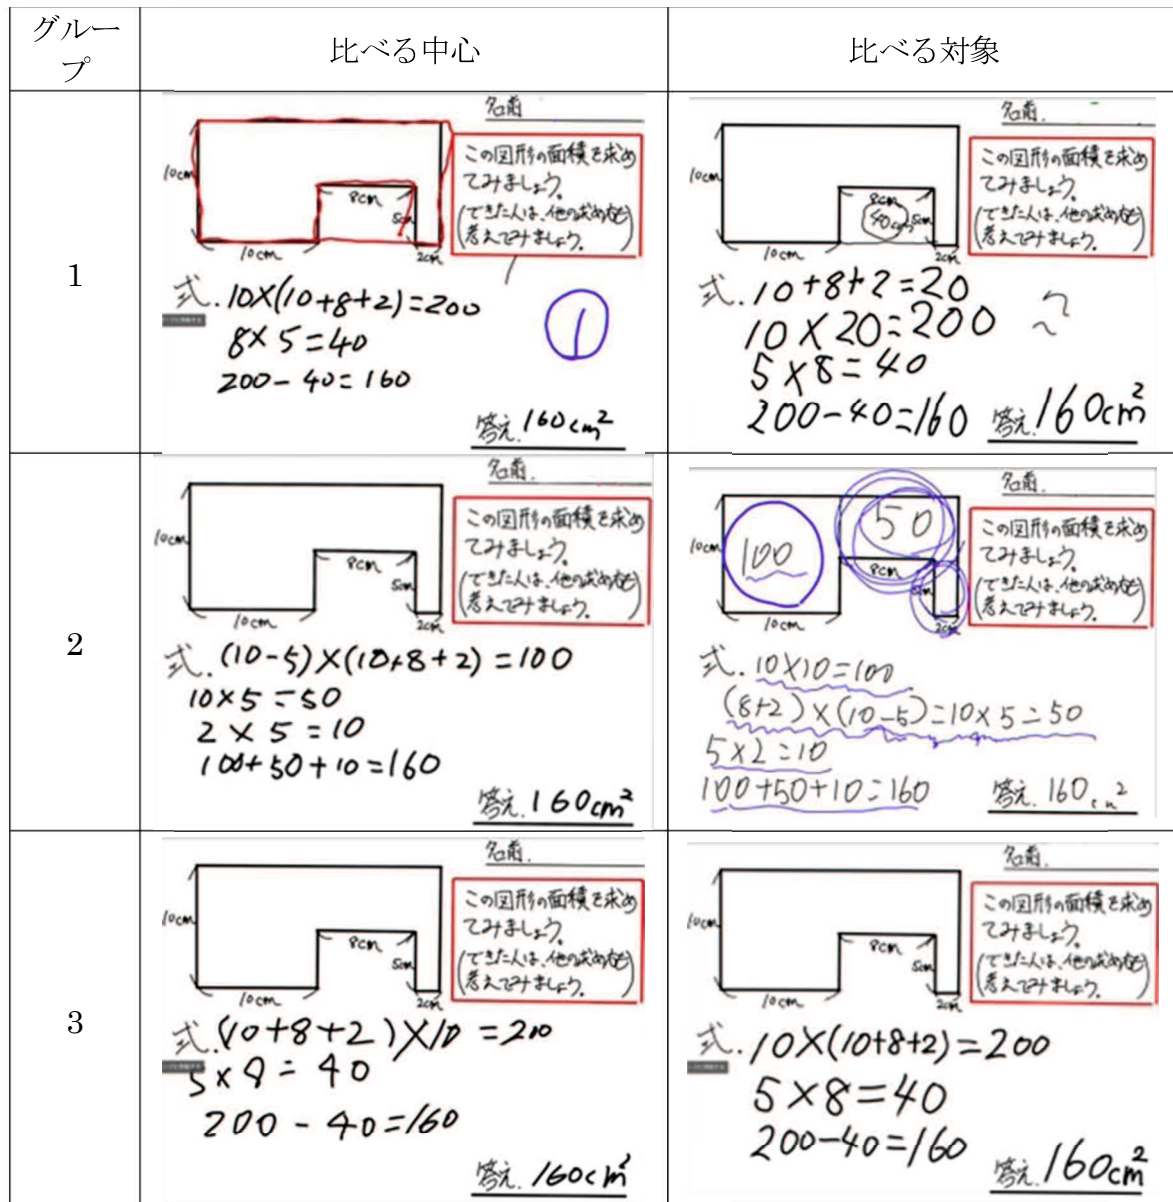 グルー
プ
比べる中心
比べる対象
1
名前
10cm
8cm
5cm
10cm
2cm
この図形の面積を求め
てみましょう。
(できた人は、他の求め方も
考えてみましょう。)
式. 10×(10+8+2)=200
8×5=40
200-40=160
①
答え. 160cm²
名前.
10cm
8cm
40cm
5cm
10cm
2cm
この図形の面積を求め
てみましょう。
(できた人は、他の求め方も
考えてみましょう。)
式. 10+8+2=20
10×20=200
5×8=40
200-40=160
答え. 160cm²
2
名前.
10cm
8cm
5cm
10cm
2cm
この図形の面積を求め
てみましょう。
(できた人は、他の求め方も
考えてみましょう。)
式. (10-5)×(10+8+2)=100
10×5=50
2×5=10
100+50+10=160
答え. 160cm²
名前.
10cm
100
50
8cm
5cm
10cm
2cm
この図形の面積を求め
てみましょう。
(できた人は、他の求め方も
考えてみましょう。)
式. 10×10=100
(8+2)×(10-5)=10×5=50
5×2=10
100+50+10=160
答え. 160cm²
3
名前.
10cm
8cm
5cm
10cm
2cm
この図形の面積を求め
てみましょう。
(できた人は、他の求め方も
考えてみましょう。)
式. (10+8+2)×10=200
5×8=40
200-40=160
答え. 160cm²
名前.
10cm
8cm
5cm
10cm
2cm
この図形の面積を求め
てみましょう。
(できた人は、他の求め方も
考えてみましょう。)
式. 10×(10+8+2)=200
5×8=40
200-40=160
答え. 160cm²